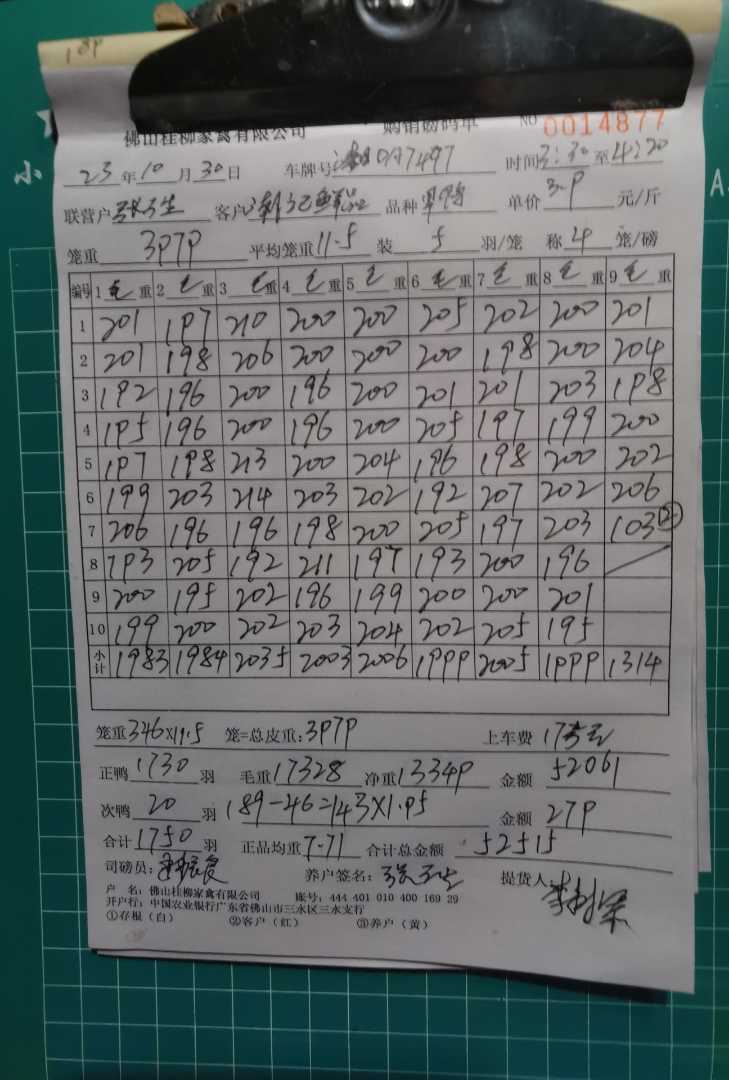 佛山桂柳家禽有限公司 购销磅码单 NO 0014877
23年10月30日 车牌号 0A7497 时间3:30至4:20
联营户 张 生 客户 品种 单价3.9元/斤
笼重3979 平均笼重11.5 装5羽/笼 称4笼/磅
编号 1毛重 2毛重 3毛重 4毛重 5毛重 6毛重 7毛重 8毛重 9毛重
1 201 197 210 200 200 205 202 200 201
2 201 198 206 200 200 200 198 200 204
3 192 196 200 196 200 201 201 203 198
4 195 196 200 196 200 205 197 199 200
5 197 198 213 200 204 196 198 200 202
6 199 203 214 203 202 192 207 202 206
7 206 196 196 198 200 205 197 203 103②
8 193 205 192 211 197 193 200 196
9 200 195 202 196 199 200 200 201
10 199 200 202 203 204 202 205 195
小计 1983 1984 2035 2003 2006 1999 2005 1999 1314
笼重346×11.5 笼=总皮重:3979 上车费
正鸭1730羽 毛重17328 净重13349 金额52061
次鸭20羽 189-46=143×1.95 金额279
合计1750羽 正品均重7.71 合计总金额52515
司磅员: 养户签名: 提货人:
户 名: 佛山桂柳家禽有限公司 账号: 444 401 010 400 169 29
开户行: 中国农业银行广东省佛山市三水区三水支行
①存根(白) ②客户(红) ③养户(黄)